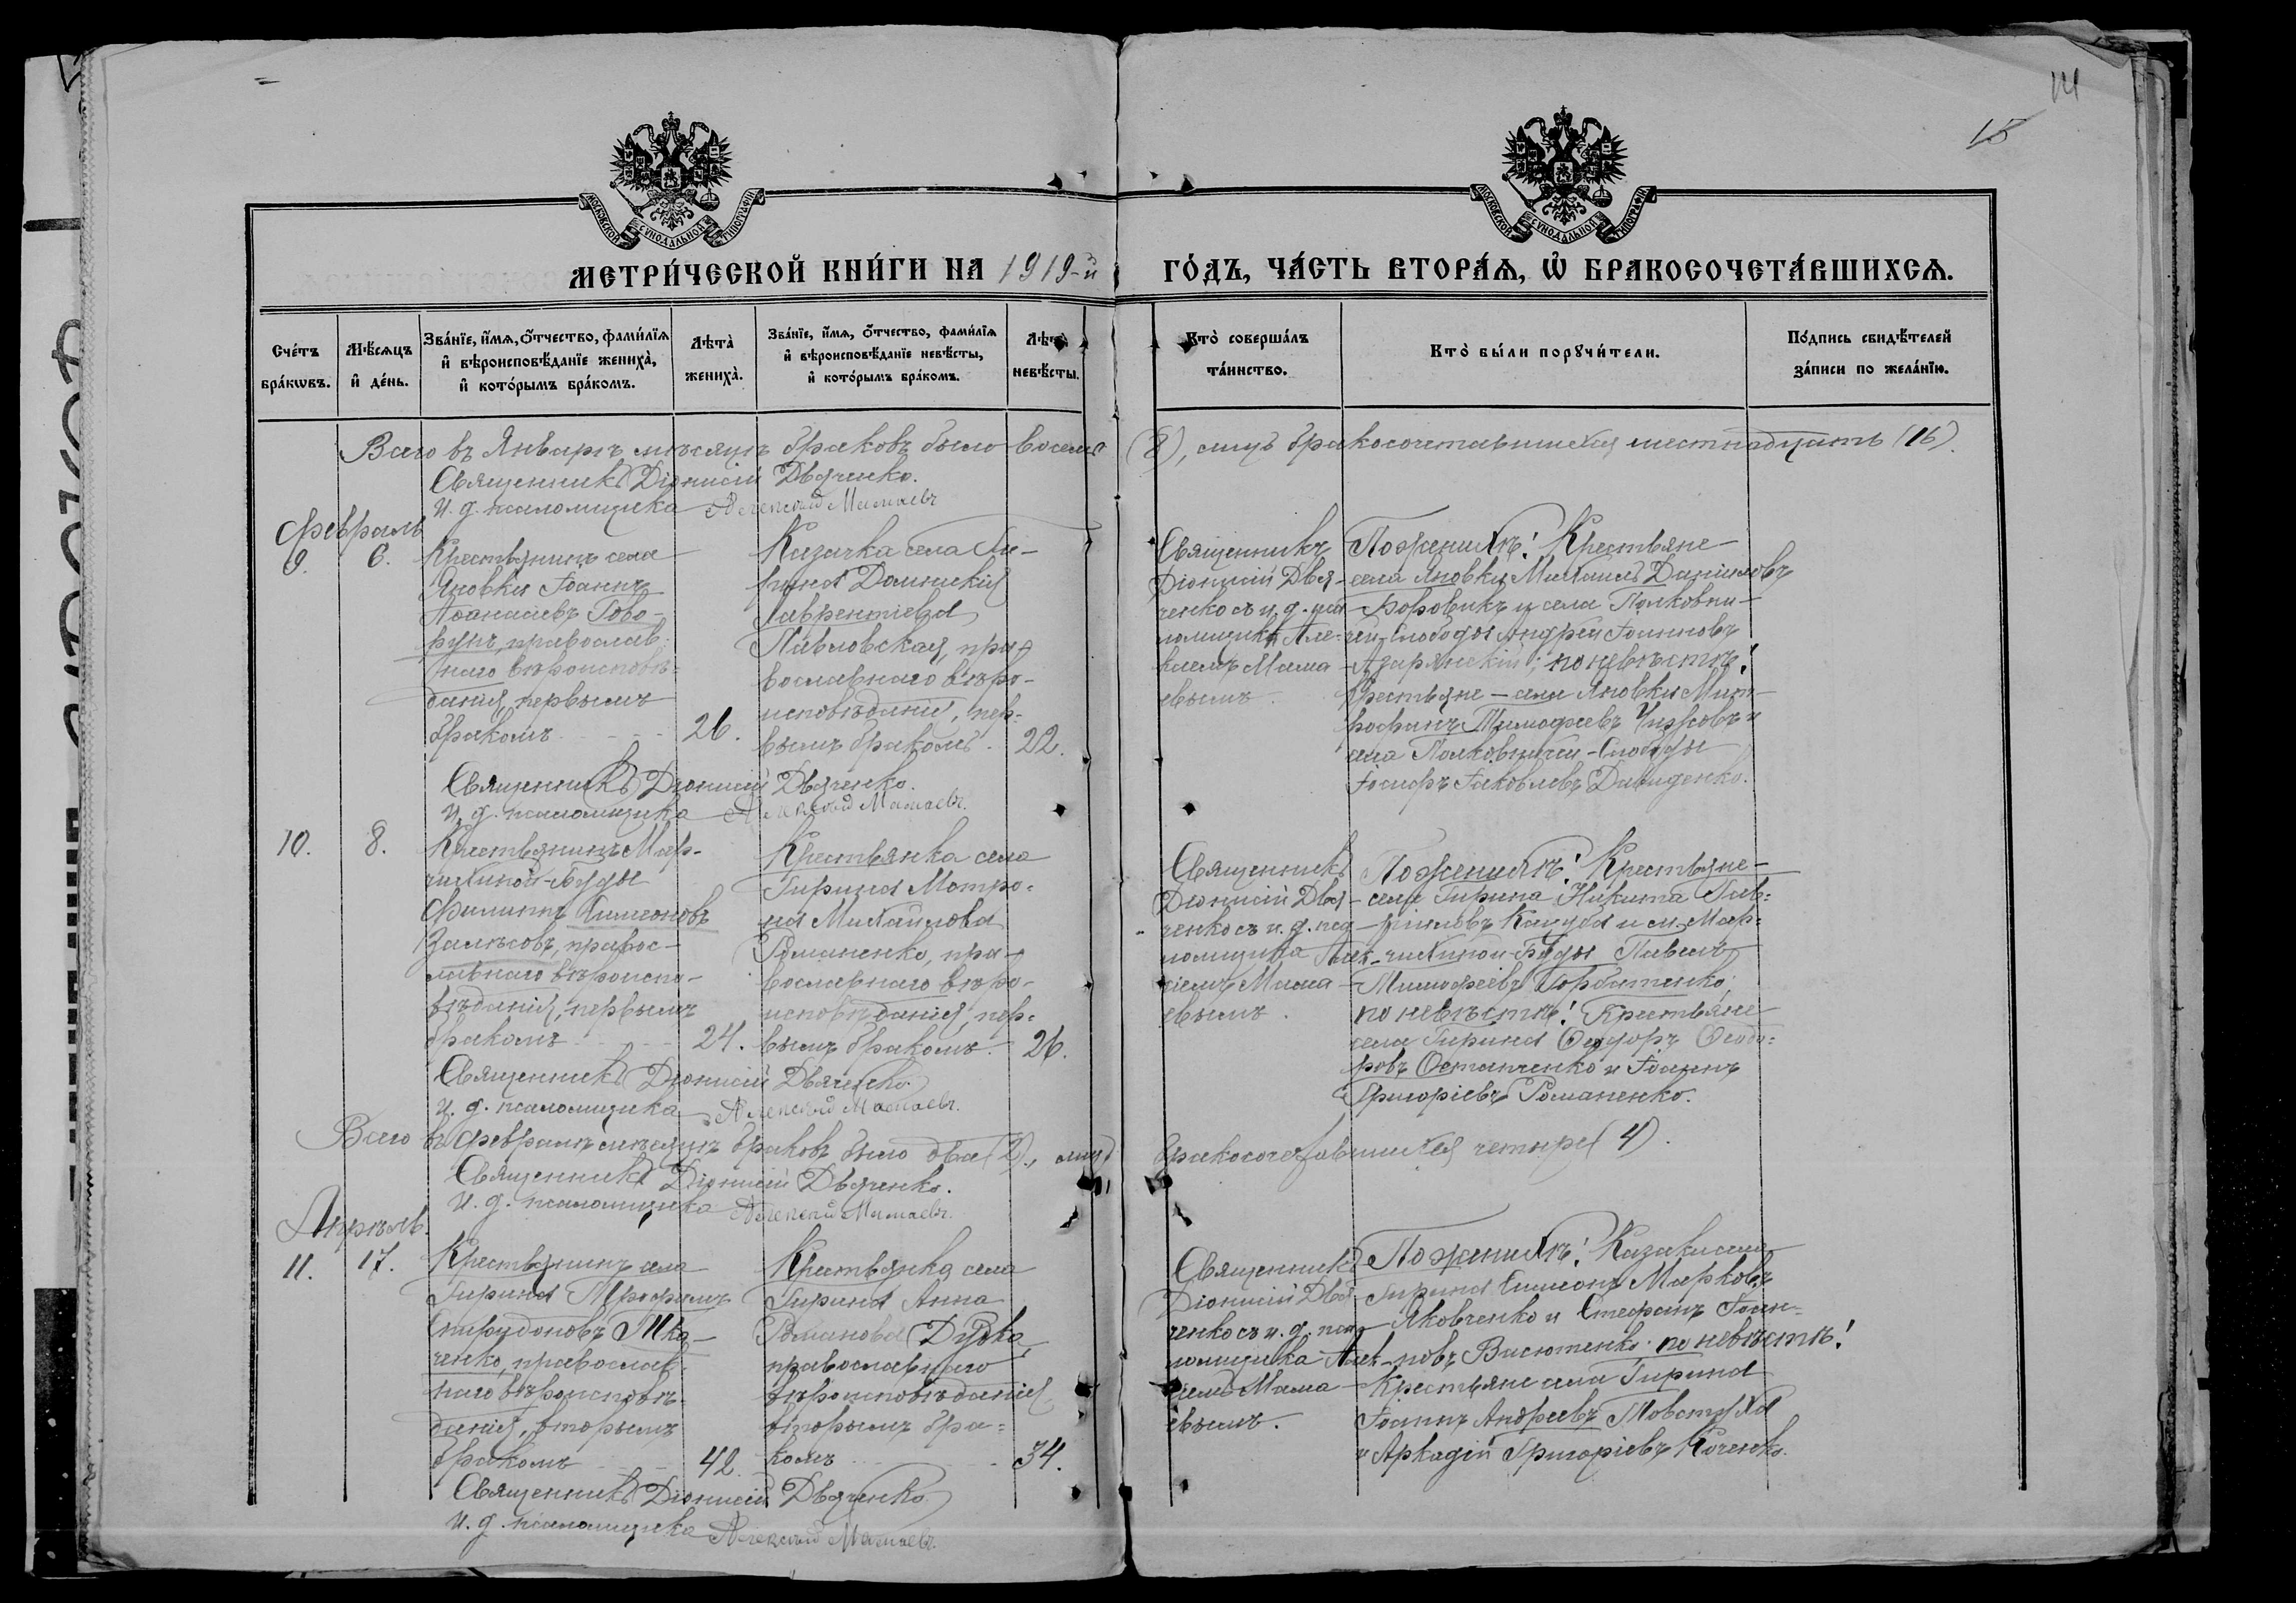 14
15
МОСКОВСКОЙ СѴНОДАЛЬНОЙ ТИПОГРАФІИ
МОСКОВСКОЙ СѴНОДАЛЬНОЙ ТИПОГРАФІИ
МЕТРИ́ЧЕСКОЙ КНИ́ГИ НА 1919-й ГО́ДЪ, ЧА́СТЬ ВТОРА́Ѧ, Ѡ҆ БРАКОСОЧЕТА́ВШИХСѦ.
Сче́тъ бра́кѡвъ.
Мѣ́сѧцъ и҆ де́нь.
Зва́нїе, и҆́мѧ, ѻ҆́тчество, фами́лїѧ и҆ вѣроисповѣ́данїе жениха̀, и҆ кото́рымъ бра́комъ.
Лѣта̀ жениха̀.
Зва́нїе, и҆́мѧ, ѻ҆́тчество, фами́лїѧ и҆ вѣроисповѣ́данїе невѣ́сты, и҆ кото́рымъ бра́комъ.
Лѣта̀ невѣ́сты.
Кто̀ соверша́лъ та́инство.
Кто̀ бы́ли порꙋчи́тели.
По́дпись свидѣ́телей за́писи по жела́нїю.
Всего въ Январѣ мѣсяцѣ браковъ было восемь (8), лицъ бракосочетавшихся шестнадцать (16).
Священникъ Діонисій Двяченко.
И. д. псаломщика Алексѣй Мамаевъ
Февраль
9.
6.
Крестьянинъ села
Яновки Іоаннъ
Аѳанасіевъ Гово-
рунъ, православ-
наго вѣроисповѣ-
данія, первымъ
бракомъ
26.
Казачка села Ги-
рина Домникія
Лаврентіева
Павловская, пра-
вославнаго вѣро-
исповѣданія, пер-
вымъ бракомъ.
22.
Священникъ
Діонисій Двя-
ченко съ и. д. пса-
ломщика Але-
ксѣемъ Мама-
евымъ.
По женихѣ: Крестьяне
села Яновки Михаилъ Даніиловъ
Боровикъ и села Полковни-
чей-Слободы Андрей Іоанновъ
по невѣстѣ:
Крестьяне села Яновки Мит-
рофанъ Тимоѳеевъ Чижовъ и
села Полковничей-Слободы
Іосифъ Іаковлевъ Давиденко.
Священникъ Діонисій Двяченко.
И. д. псаломщика Алексѣй Мамаевъ.
10.
8.
Крестьянинъ Мар-
чихиной-Буды
Филиппъ Симеоновъ
Залѣсовъ, правос-
лавнаго вѣроиспо-
вѣданія, первымъ
бракомъ
24.
Крестьянка села
Гирина Матро-
на Михайлова
Романенко, пра-
вославнаго вѣро-
исповѣданія, пер-
вымъ бракомъ.
26.
Священникъ
Діонисій Двя-
ченко съ и. д. пса-
ломщика Алек-
сѣемъ Мама-
евымъ.
По женихѣ: Крестьяне
села Гирина Никита Гав-
ріиловъ Кацуба и м. Мар-
чихиной-Буды Павелъ
Тимоѳеевъ Горбатенко;
по невѣстѣ: Крестьяне
села Гирина Ѳеодоръ Ѳеодо-
ровъ Остапченко и Іоаннъ
Григоріевъ Романенко.
Священникъ Діонисій Двяченко.
И. д. псаломщика Алексѣй Мамаевъ.
Всего въ Февралѣ мѣсяцѣ браковъ было два (2), лицъ бракосочетавшихся четыре (4).
Священникъ Діонисій Двяченко.
И. д. псаломщика Алексѣй Мамаевъ.
Апрѣль.
11.
17.
Крестьянинъ села
Гирина Трофимъ
Спиридоновъ Тка-
ченко, православ-
наго вѣроисповѣ-
данія, вторымъ
бракомъ
42.
Крестьянка села
Гирина Анна
Романова Дудка,
православнаго
вѣроисповѣданія
вторымъ бра-
комъ
34.
Священникъ
Діонисій Двя-
ченко съ и. д. пса-
ломщика Алек-
сѣемъ Мама-
евымъ.
По женихѣ: Казаки села
Гирина Симеонъ Марковъ
Яковченко и Стефанъ Іоан-
новъ Васютенко; по невѣстѣ:
Крестьяне села Гирина
Іоаннъ Андреевъ Товстуха
и Аркадій Григоріевъ Коченко.
Священникъ Діонисій Двяченко
И. д. псаломщика Алексѣй Мамаевъ.